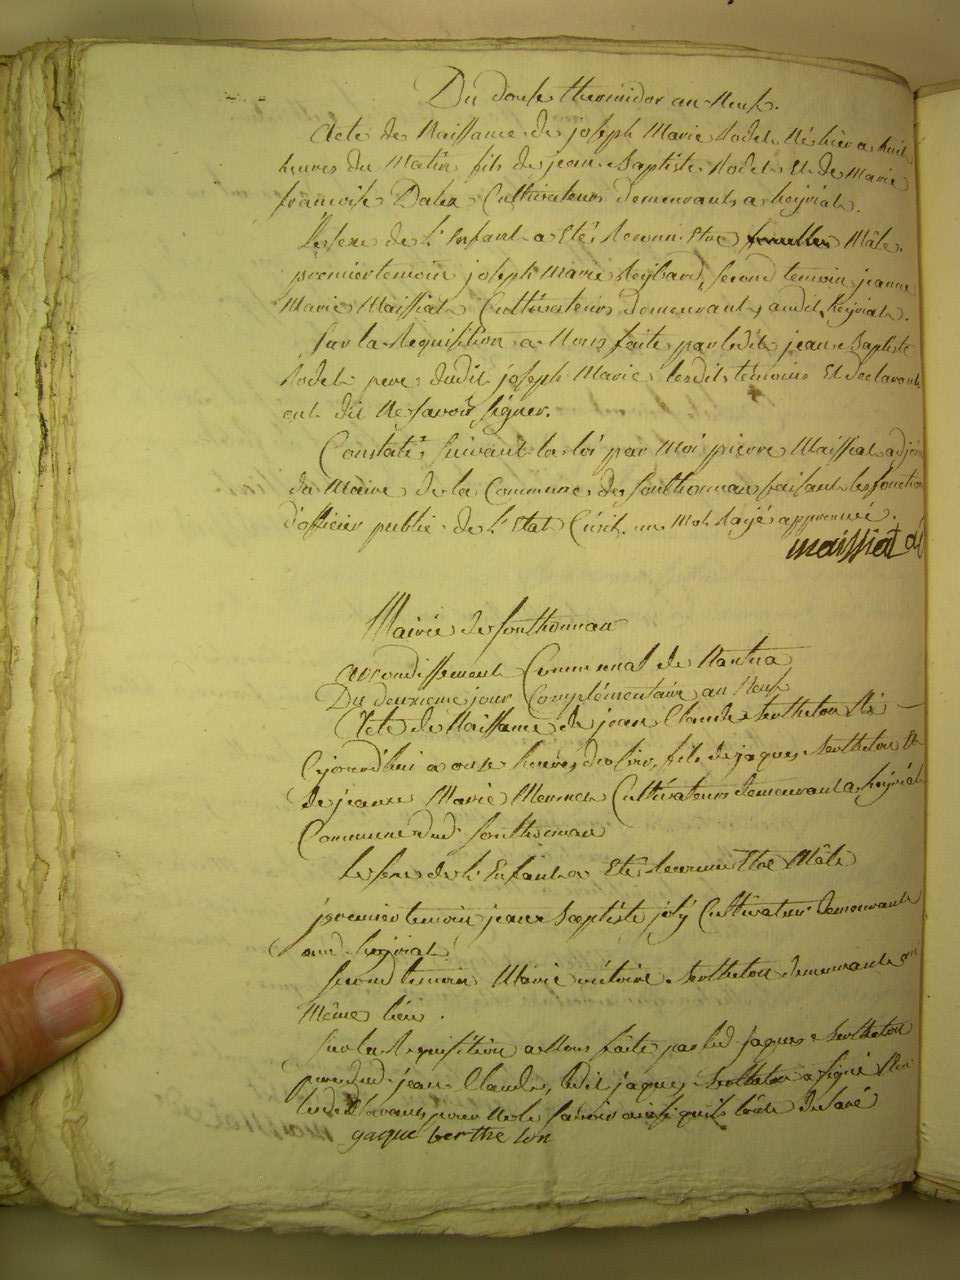 Du douse thermidor an Neuf.
Acte de Naissance de joseph Marie Rodet Né hier a huit
heures du Matin fils de jean Baptiste Rodet Et de Marie
francoise Dalex Cultivateurs demeurants a heyriat.
Le sexe de l'Enfant a Eté Reconnu Etre femelles Mâle.
premier temoin joseph Marie Reybard, second temoin jeanne
Marie Maissiat Cultivateurs demeurants audit heyriat.
Sur la Requisition a Nous faite par ledit jean Baptiste
Rodet pere dudit joseph Marie lesdits témoins Et declarant
ont dit Ne savoir signer.
Constaté suivant la loi par Moi pierre Maissiat adjoin
du Maire de la Commune de Sonthonnax faisant les fonction
d'officier public de l'Etat Civil. un Mot Rayé approuvé.
maissiat adj
Mairie de Sonthonnax
arrondissement Communal de Nantua
Du deuxieme jour Complémentaire an Neuf
Acte de Naissance de jean Claude Bertheton Né
Cejourd'hui a onze heures du soir, fils de jaques Bertheton Et
de jeanne Marie Cultivateurs demeurant a heyriat
Commune dud. Sonthonnax
Le sexe de l'Enfant a Eté Reconnu Etre Mâle
premier temoin jean Baptiste joly Cultivateur demeurant
aud. heyriat
second temoin Marie victoire Bertheton demeurant au
Même lieu.
Sur la Requisition a Nous faite par led. jaques Bertheton
pere dud. jean Claude, ledit jaques Bertheton a signé Non
pour Ne le savoir ainsi quils l'ont declaré
jaque berthe ton